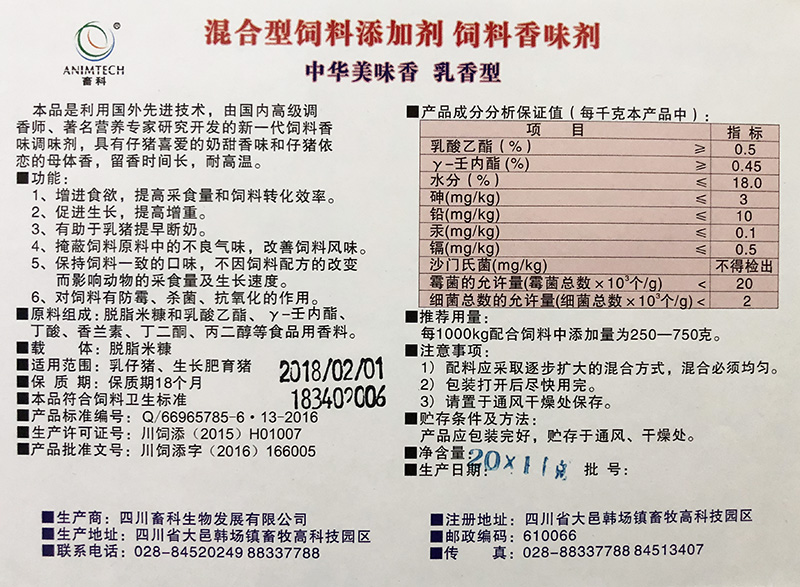 ANIMTECH
畜科
®
混合型饲料添加剂 饲料香味剂
中华美味香 乳香型
本品是利用国外先进技术，由国内高级调
香师、著名营养专家研究开发的新一代饲料香
味调味剂，具有仔猪喜爱的奶甜香味和仔猪依
恋的母体香，留香时间长，耐高温。
■功能：
1、增进食欲，提高采食量和饲料转化效率。
2、促进生长，提高增重。
3、有助于乳猪提早断奶。
4、掩蔽饲料原料中的不良气味，改善饲料风味。
5、保持饲料一致的口味，不因饲料配方的改变
而影响动物的采食量及生长速度。
6、对饲料有防霉、杀菌、抗氧化的作用。
■原料组成：脱脂米糠和乳酸乙酯、γ-壬内酯、
丁酸、香兰素、丁二酮、丙二醇等食品用香料。
■载 体：脱脂米糠
■适用范围：乳仔猪、生长肥育猪
■保 质 期：保质期18个月
■本品符合饲料卫生标准
2018/02/01
183402006
■产品标准编号：Q/66965785-6·13-2016
■生产许可证号：川饲添（2015）H01007
■产品批准文号：川饲添字（2016）166005
■产品成分分析保证值（每千克本产品中）：
项 目 指 标
乳酸乙酯（%） ≥ 0.5
γ-壬内酯(%) ≥ 0.45
水分（%） ≤ 18.0
砷(mg/kg) ≤ 3
铅(mg/kg) ≤ 10
汞(mg/kg) ≤ 0.1
镉(mg/kg) ≤ 0.5
沙门氏菌(mg/kg) 不得检出
霉菌的允许量(霉菌总数×10³个/g) < 20
细菌总数的允许量(细菌总数×10³个/g) < 2
■推荐用量：
每1000kg配合饲料中添加量为250—750克。
■注意事项：
1）配料应采取逐步扩大的混合方式，混合必须均匀。
2）包装打开后尽快用完。
3）请置于通风干燥处保存。
■贮存条件及方法：
产品应包装完好，贮存于通风、干燥处。
■净含量：
20×1kg
■生产日期： 批 号：
■生产商：四川畜科生物发展有限公司
■生产地址：四川省大邑韩场镇畜牧高科技园区
■联系电话：028-84520249 88337788
■注册地址：四川省大邑韩场镇畜牧高科技园区
■邮政编码：610066
■传 真：028-88337788 84513407